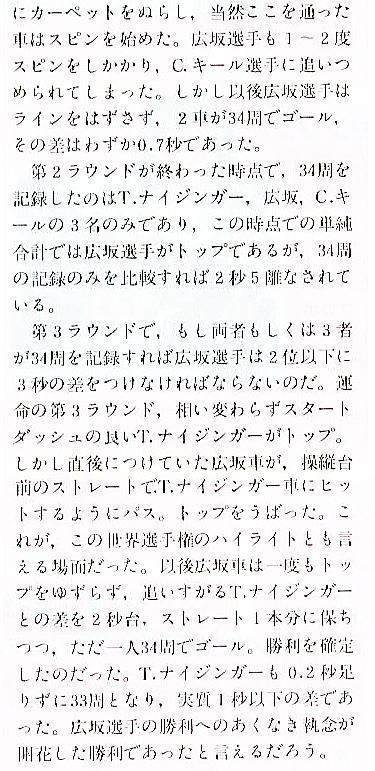 にカーペットをぬらし，当然ここを通った
車はスピンを始めた。広坂選手も1～2度
スピンをしかかり，C.キール選手に追いつ
められてしまった。しかし以後広坂選手は
ラインをはずさず，2車が34周でゴール，
その差はわずか0.7秒であった。
第2ラウンドが終わった時点で，34周を
記録したのはT.ナイジンガー，広坂，C.キ
ールの3名のみであり，この時点での単純
合計では広坂選手がトップであるが，34周
の記録のみを比較すれば2秒5離なされて
いる。
第3ラウンドで，もし両者もしくは3者
が34周を記録すれば広坂選手は2位以下に
3秒の差をつけなければならないのだ。運
命の第3ラウンド，相い変わらずスタート
ダッシュの良いT.ナイジンガーがトップ。
しかし直後につけていた広坂車が，操縦台
前のストレートでT.ナイジンガー車にヒッ
トするようにパス。トップをうばった。こ
れが，この世界選手権のハイライトとも言
える場面だった。以後広坂車は一度もトッ
プをゆずらず，追いすがるT.ナイジンガー
との差を2秒台，ストレート1本分に保ち
つつ，ただ一人34周でゴール。勝利を確定
したのだった。T.ナイジンガーも0.2秒足
りずに33周となり，実質1秒以下の差であ
った。広坂選手の勝利へのあくなき執念が
開花した勝利であったと言えるだろう。